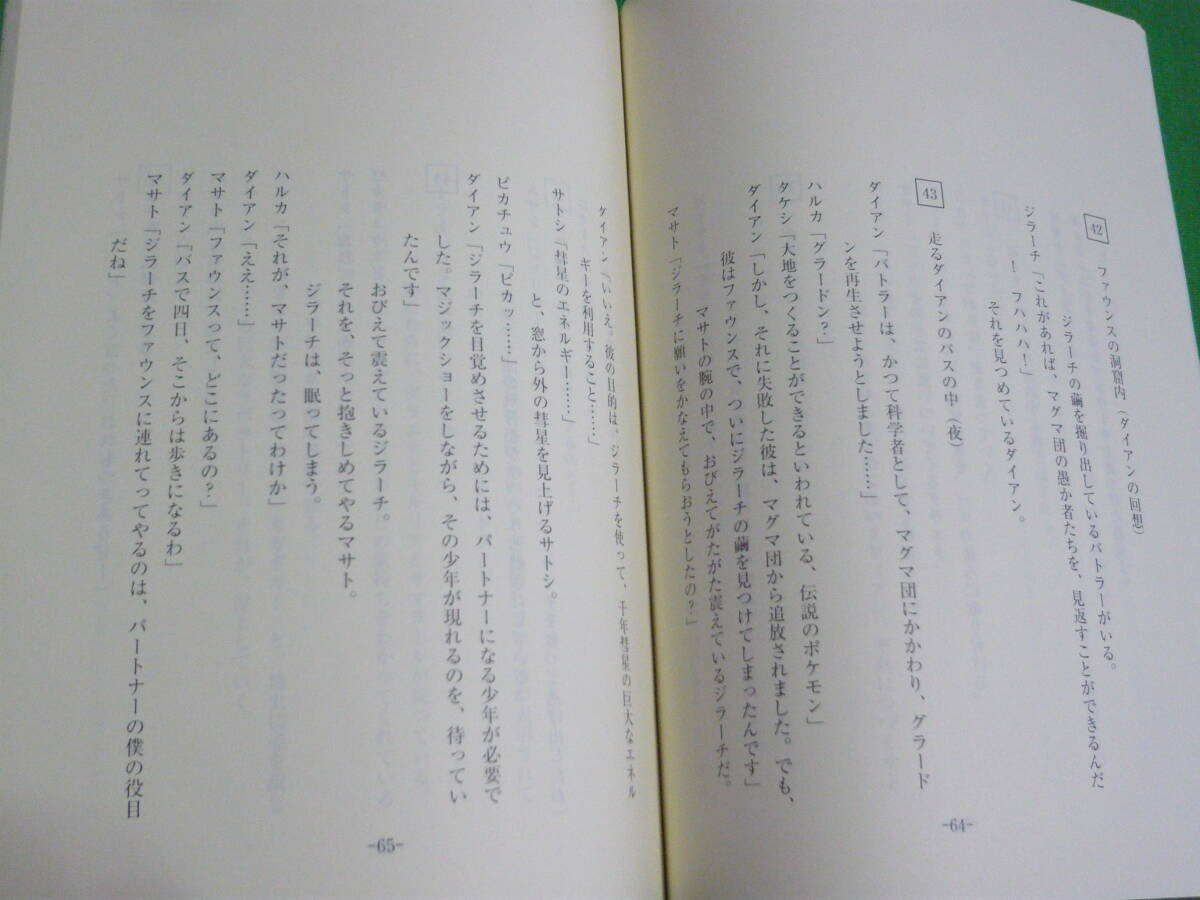 42　ファウンスの洞窟内（ダイアンの回想）
ジラーチの繭を掘り出しているバトラーがいる。
ジラーチ「これがあれば、マグマ団の愚か者たちを、見返すことができるんだ
！　フハハハ！」
それを見つめているダイアン。
43　走るダイアンのバスの中（夜）
ダイアン「バトラーは、かつて科学者として、マグマ団にかかわり、グラード
ンを再生させようとしました……」
ハルカ「グラードン？」
タケシ「大地をつくることができるといわれている、伝説のポケモン」
ダイアン「しかし、それに失敗した彼は、マグマ団から追放されました。でも、
彼はファウンスで、ついにジラーチの繭を見つけてしまったんです」
マサトの腕の中で、おびえてがたがた震えているジラーチだ。
マサト「ジラーチに願いをかなえてもらおうとしたの？」
-64-
ダイアン「いいえ。彼の目的は、ジラーチを使って、千年彗星の巨大なエネル
ギーを利用すること……」
サトシ「彗星のエネルギー……」
と、窓から外の彗星を見上げるサトシ。
ピカチュウ「ピカッ……」
ダイアン「ジラーチを目覚めさせるためには、パートナーになる少年が必要で
した。マジックショーをしながら、その少年が現れるのを、待ってい
たんです」
おびえて震えているジラーチ。
それを、そっと抱きしめてやるマサト。
ジラーチは、眠ってしまう。
ハルカ「それが、マサトだったってわけか」
ダイアン「ええ……」
マサト「ファウンスって、どこにあるの？」
ダイアン「バスで四日、そこからは歩きになるわ」
マサト「ジラーチをファウンスに連れてってやるのは、パートナーの僕の役目
だね」
-65-